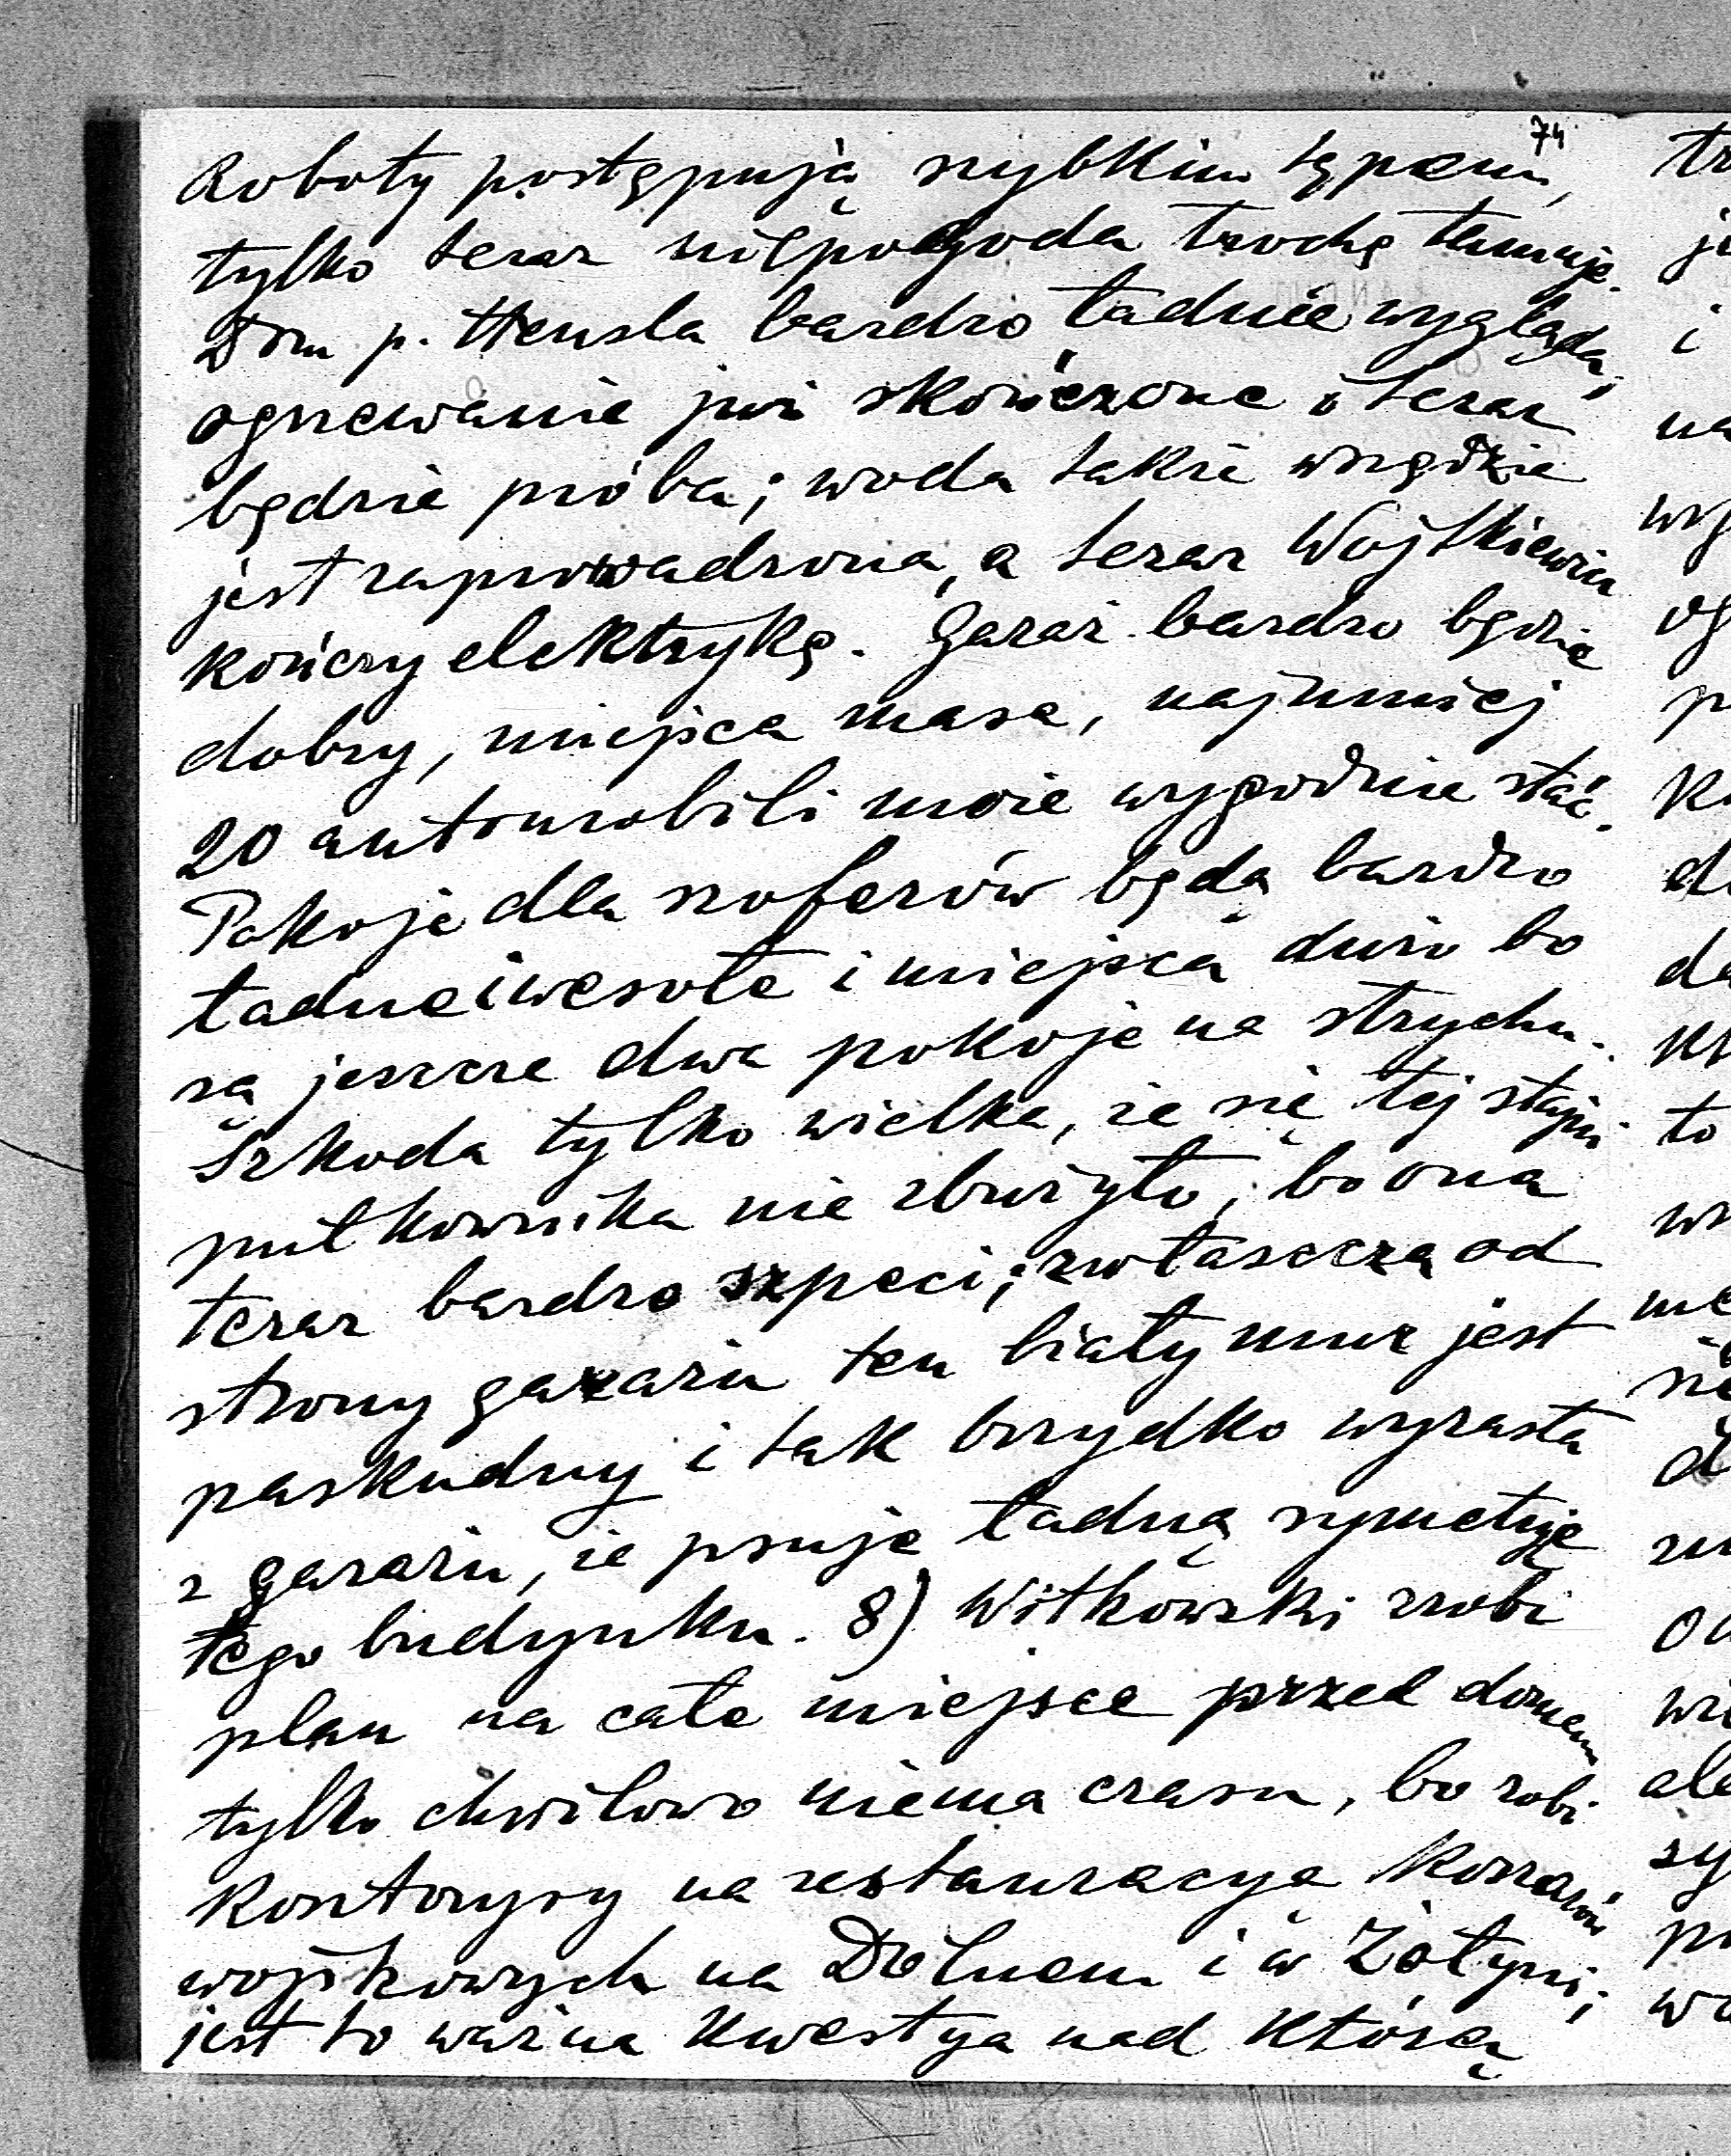 74
Roboty postępują szybkim tępem,
tylko teraz niepogoda trochę tamuje.
Dom p. Hensla bardzo ładnie wygląda,
ogrzewanie już skończone i teraz
będzie próba; woda także wszędzie
jest zaprowadzona, a teraz Wojtkiewicz
kończy elektrykę. Garaż bardzo będzie
dobry, miejsca masa, najmniej
20 automobili może wygodnie stać.
Pokoje dla szoferów będą bardzo
ładne i wesołe i miejsca dużo bo
są jeszcze dwa pokoje na strychu.
Szkoda tylko wielka, że się tej stajni
pułkownika nie zburzyło, bo ona
teraz bardzo szpeci; zwłaszcza od
strony garażu ten biały mur jest
paskudny i tak brzydko wyrasta
z garażu, że psuje ładną symetrję
tego budynku. 8) Witkowski zrobi
plan na całe miejsce przed domem
tylko chwilowo niema czasu, bo robi
kosztorysy na restauracyę koszarów
wojskowych na Dolnem i w Żołyni;
jest to ważna kwestya nad którą